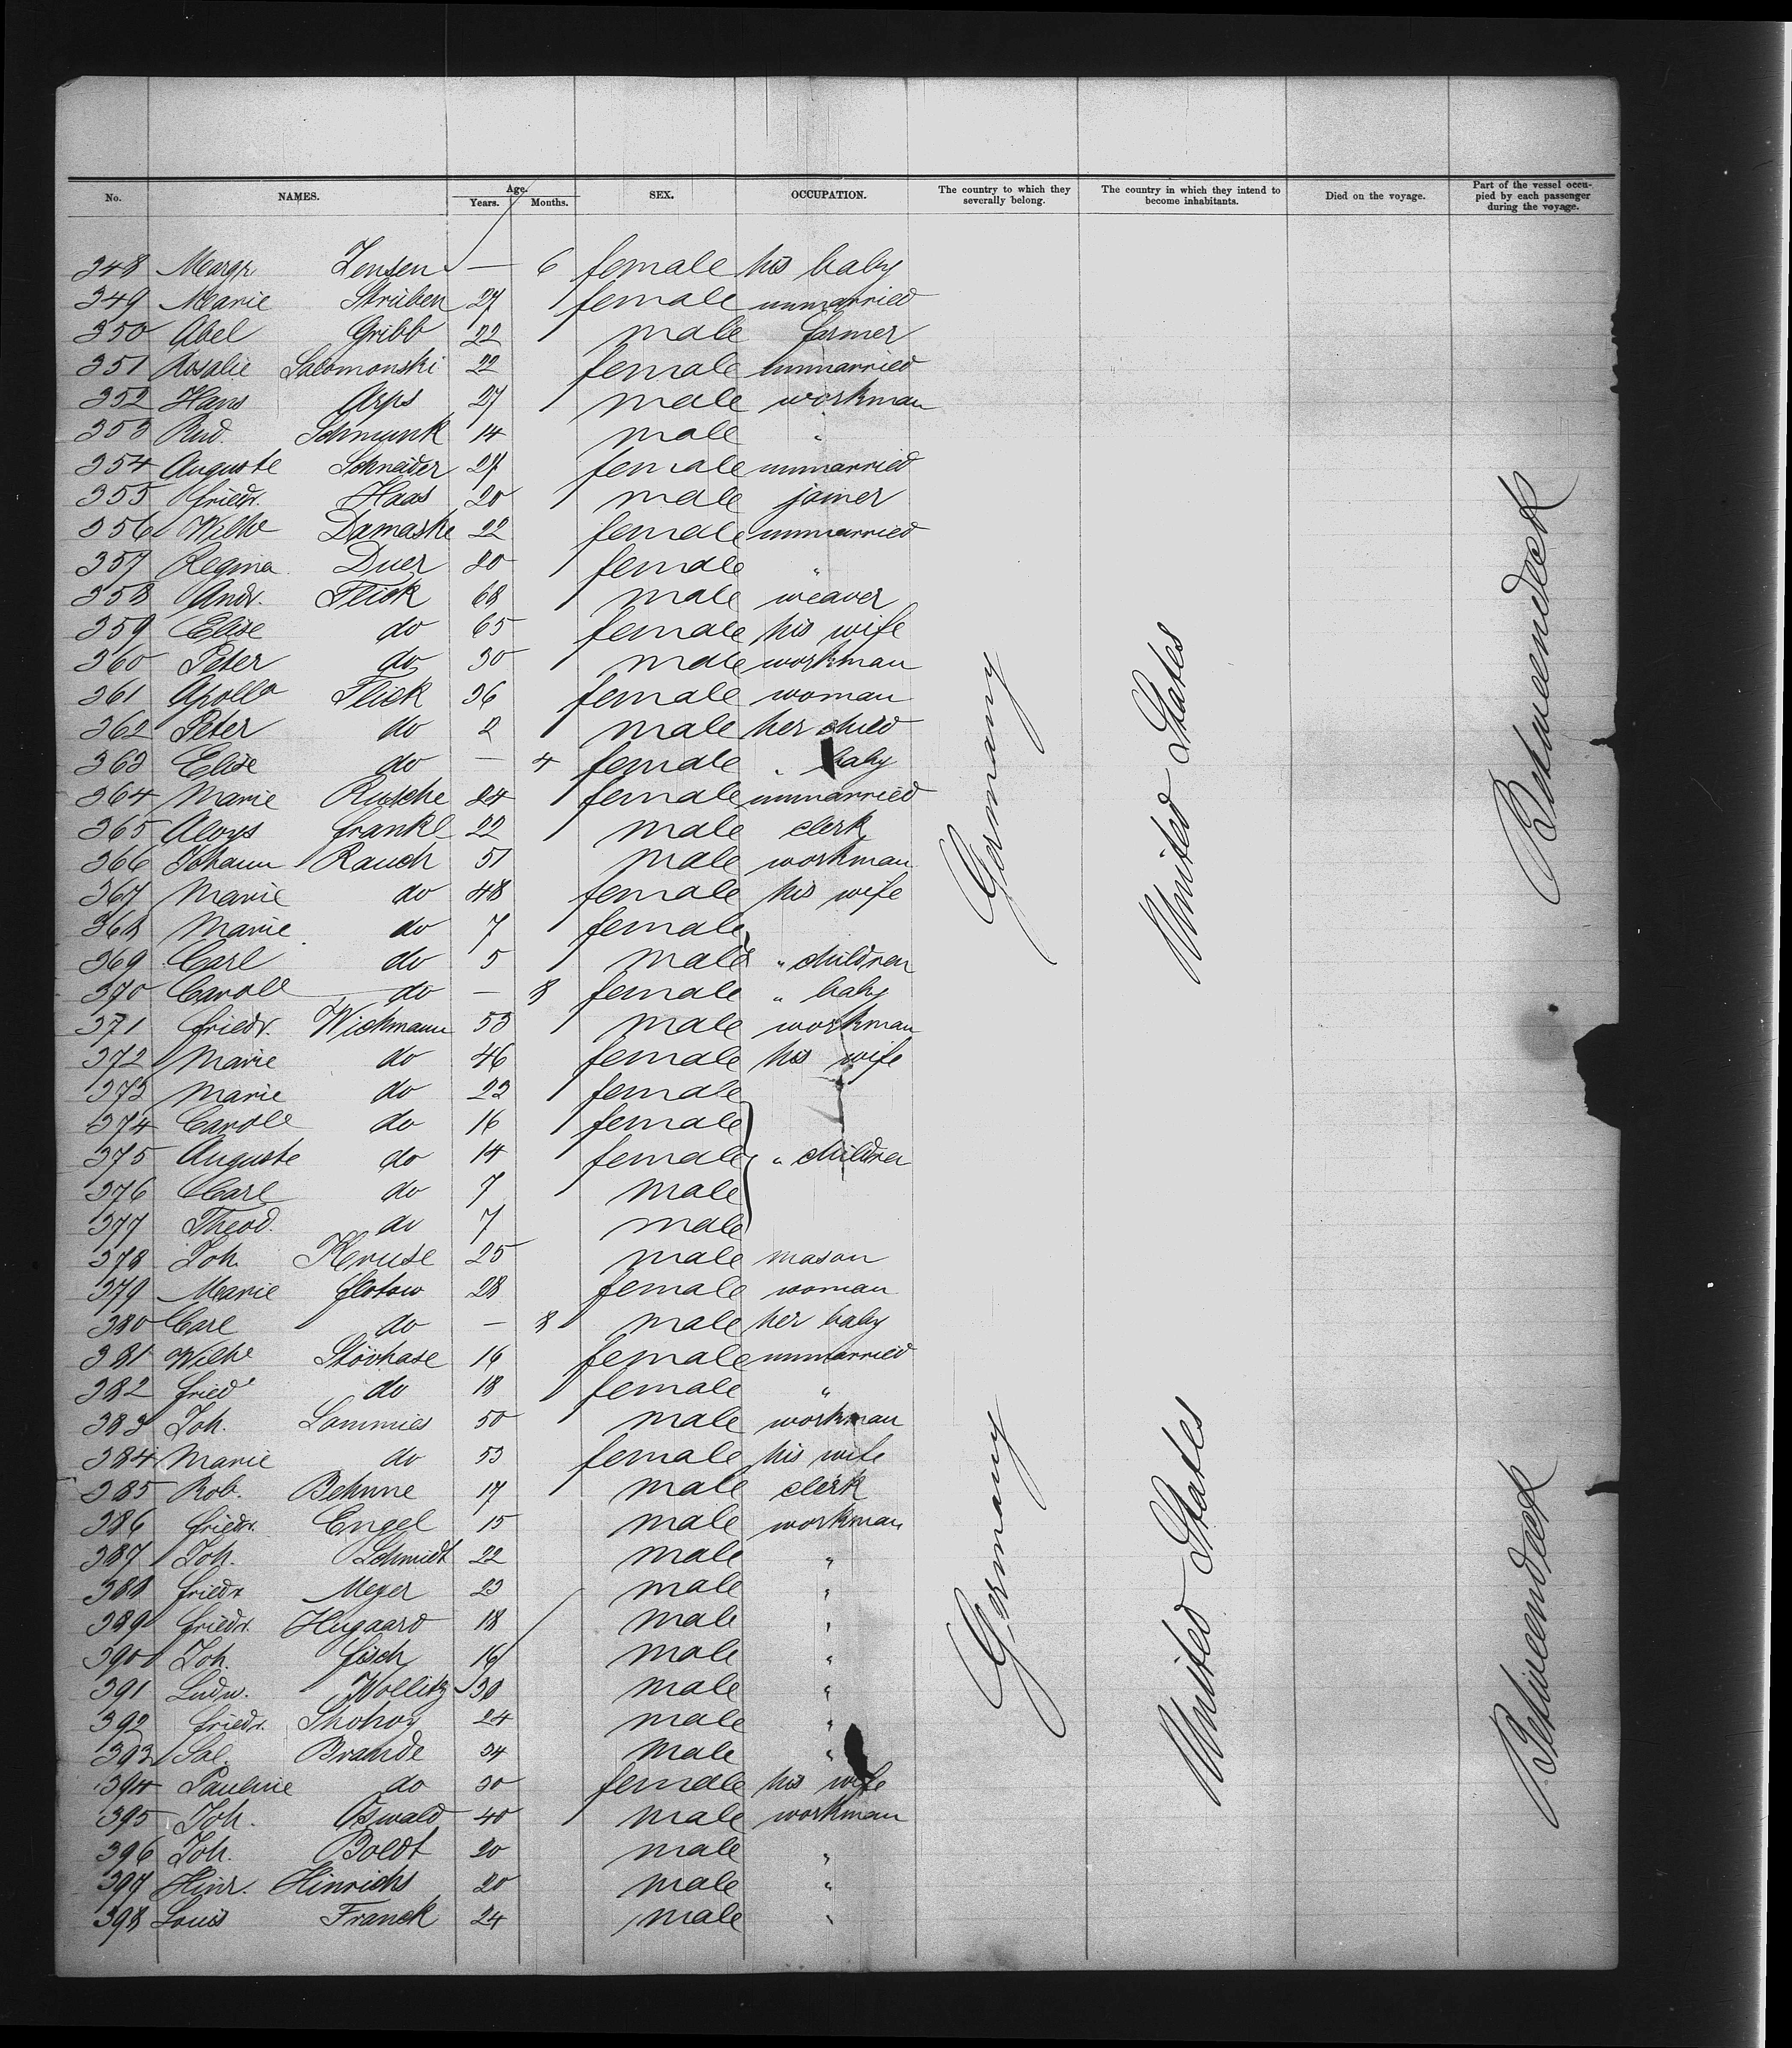 No. NAMES. Age. Years. Months. SEX. OCCUPATION. The country to which they severally belong. The country in which they intend to become inhabitants. Died on the voyage. Part of the vessel occupied by each passenger during the voyage.
348 Margr Jensen — 6 female his baby
349 Marie Strüben 27 female unmarried
350 Abel Gribb 22 male farmer
351 Rosalie Salomonski 22 female unmarried
352 Hans Arps 27 male workman
353 Rud. Schmunk 14 male "
354 Auguste Schneider 27 female unmarried
355 Friedr. Haas 20 male joiner
356 Wilhe Damaske 22 female unmarried
357 Regina Duer 20 female "
358 Andr. Flick 68 male weaver
359 Elise do 65 female his wife
360 Peter do 30 male workman
361 Apolla Flick 36 female woman
362 Peter do 2 male her child
363 Elise do — 4 female " baby
364 Marie Rusche 24 female unmarried
365 Aloys Frankl 22 male clerk
366 Johann Rauch 51 male workman
367 Marie do 48 female his wife
368 Marie do 7 female
369 Carl do 5 male " children
370 Caroll do — 8 female " baby
371 Friedr. Wichmann 53 male workman
372 Marie do 46 female his wife
373 Marie do 22 female
374 Caroll do 16 female
375 Auguste do 14 female " children
376 Carl do 7 male
377 Theod. do 7 male
378 Joh. Kruse 25 male mason
379 Marie Flotow 28 female woman
380 Carl do — 8 male her baby
381 Wilhe Störhase 16 female unmarried
382 Fried do 18 female "
383 Joh. Lammies 50 male workman
384 Marie do 53 female his wife
385 Rob. Behnne 17 male clerk
386 Friedr. Engel 15 male workman
387 Joh. Schmidt 22 male "
388 Friedr Meyer 23 male "
389 Friedr. Hugaard 18 male "
390 Joh. Fisch 16 male "
391 Ludw. Wollitz 30 male "
392 Friedr. 24 male "
393 Sal. Brande 34 male "
394 Pauline do 30 female his wife
395 Joh. Oswald 40 male workman
396 Joh. Boldt 20 male "
397 Hinr. Hinrichs 20 male "
398 Louis Franck 24 male "
Germany
United States
Betweendeck
Germany
United States
Betweendeck